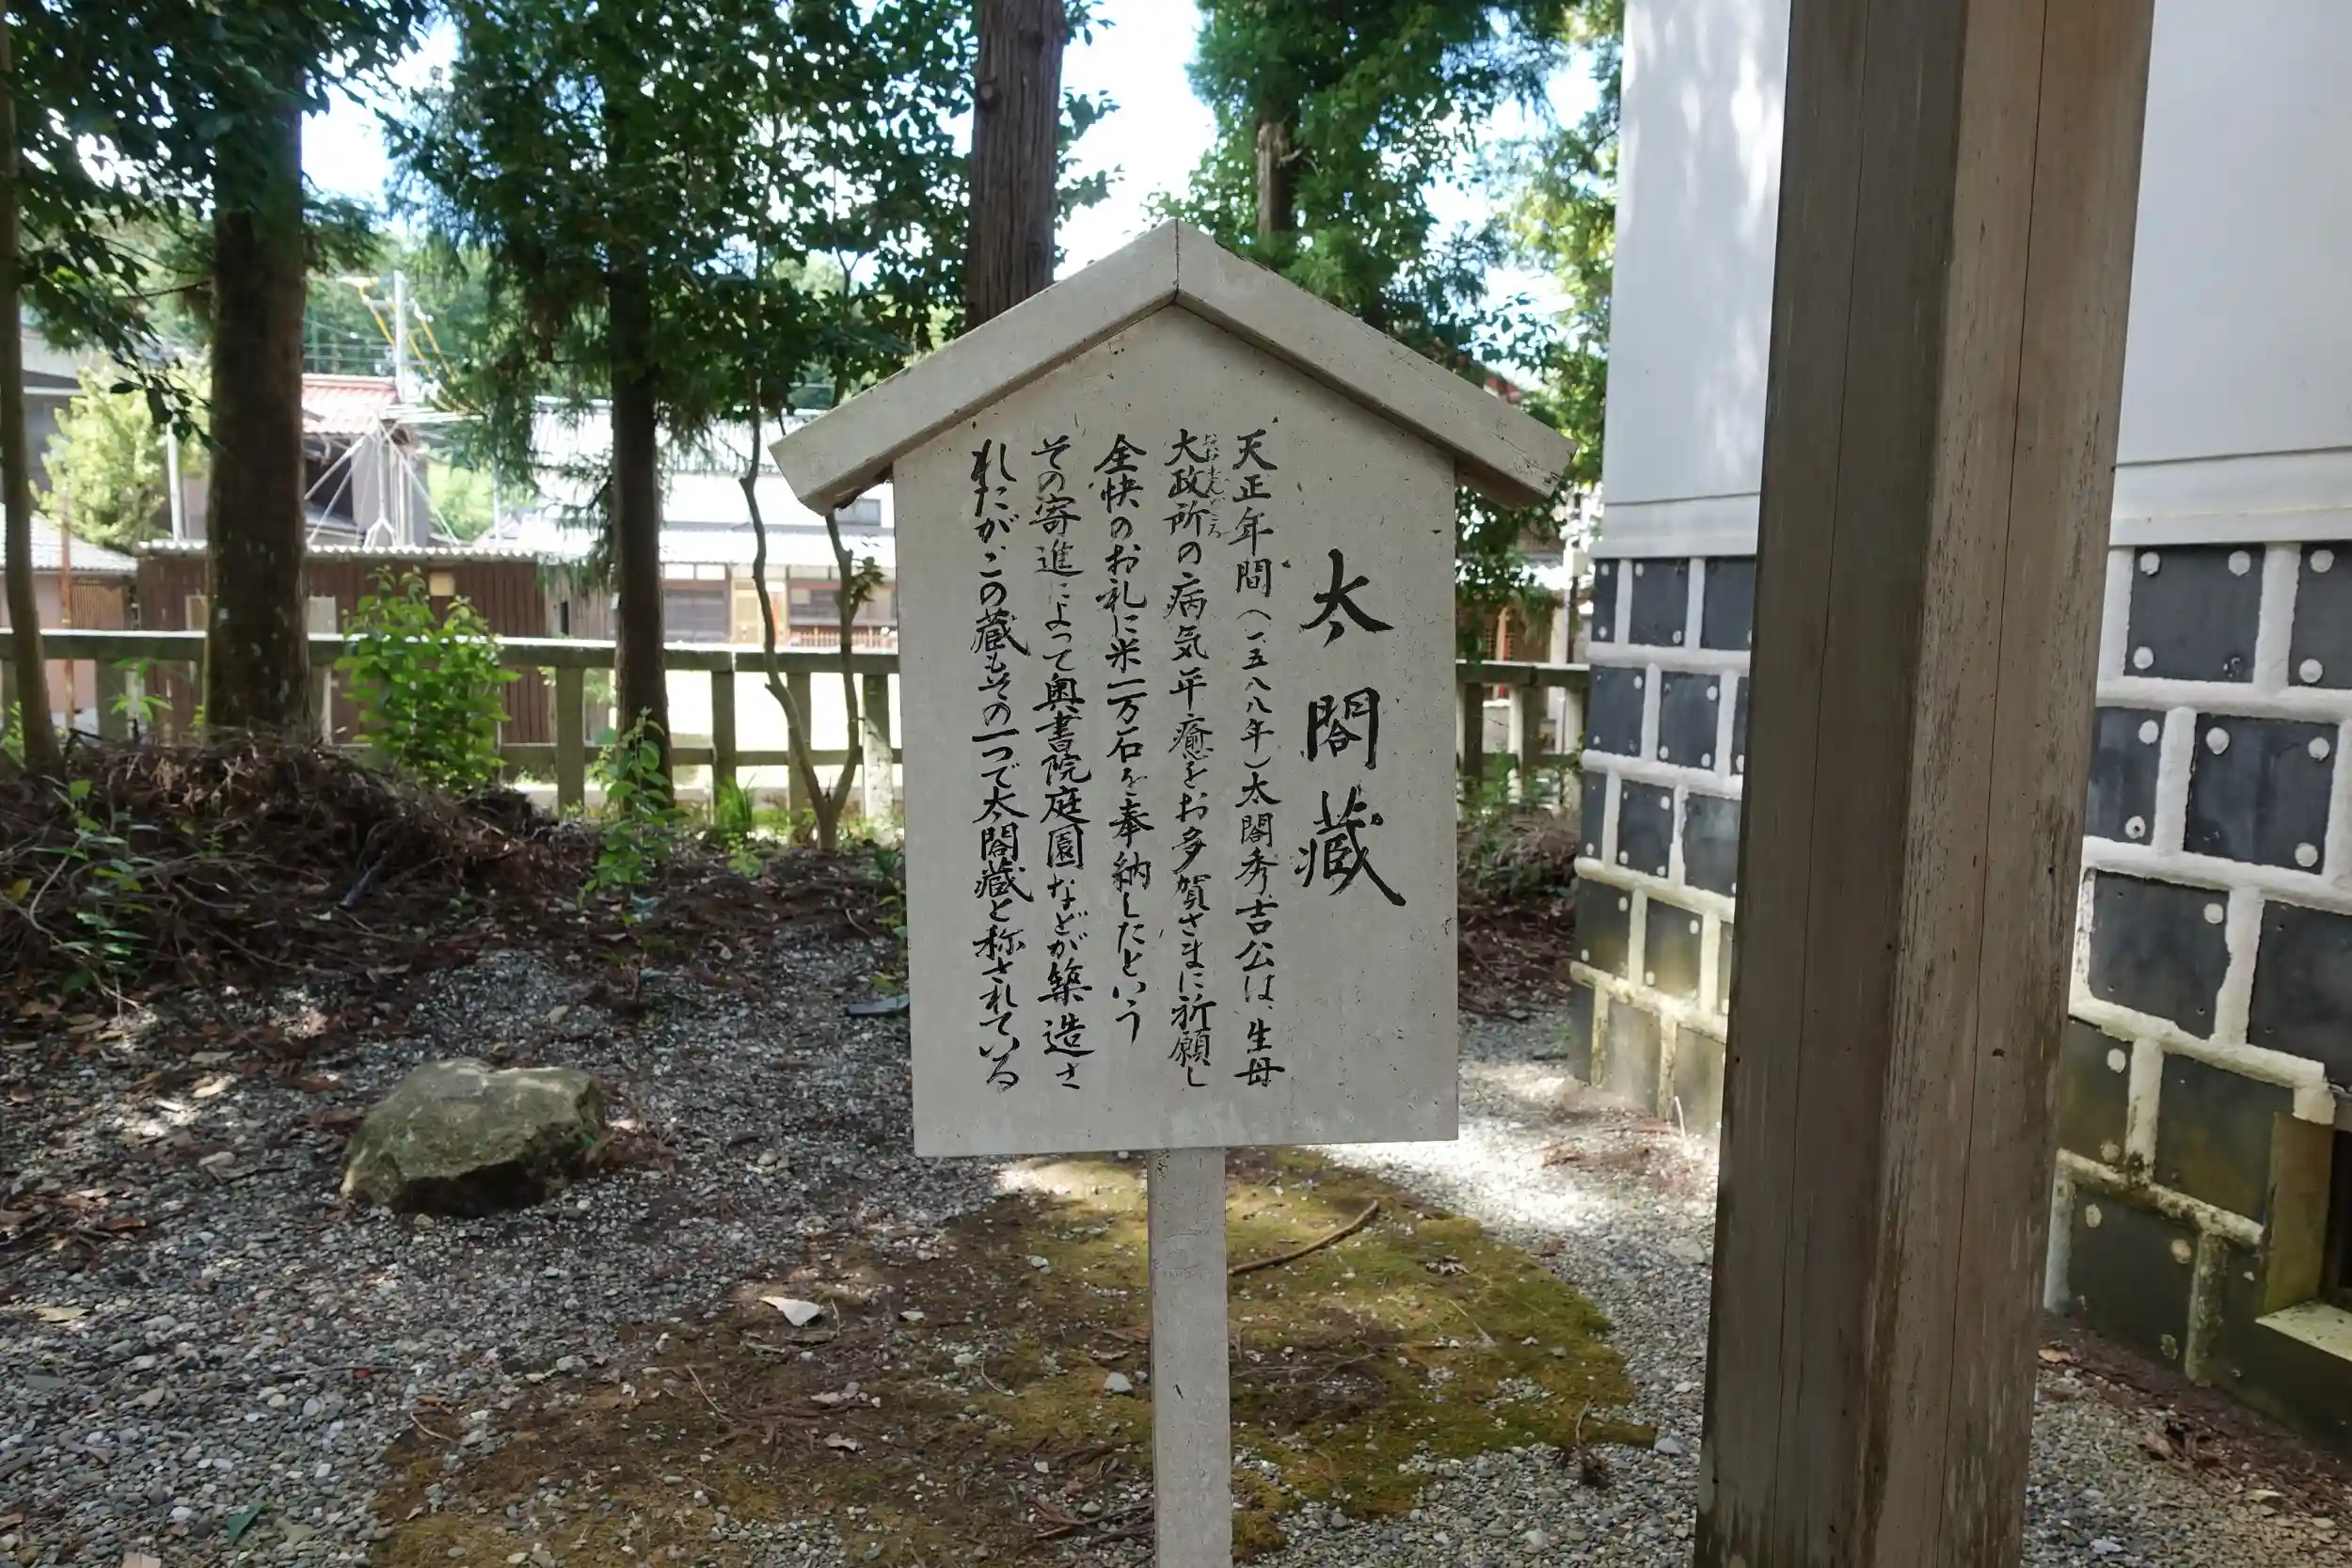 太閤蔵
天正年間(一五八八年)太閤秀吉公は、生母
大政所の病気平癒をお多賀さまに祈願し
おおまんどころ
全快のお礼に米一万石を奉納したという
その寄進によって奥書院庭園などが築造さ
れたがこの蔵もその一つで太閤蔵と称されている